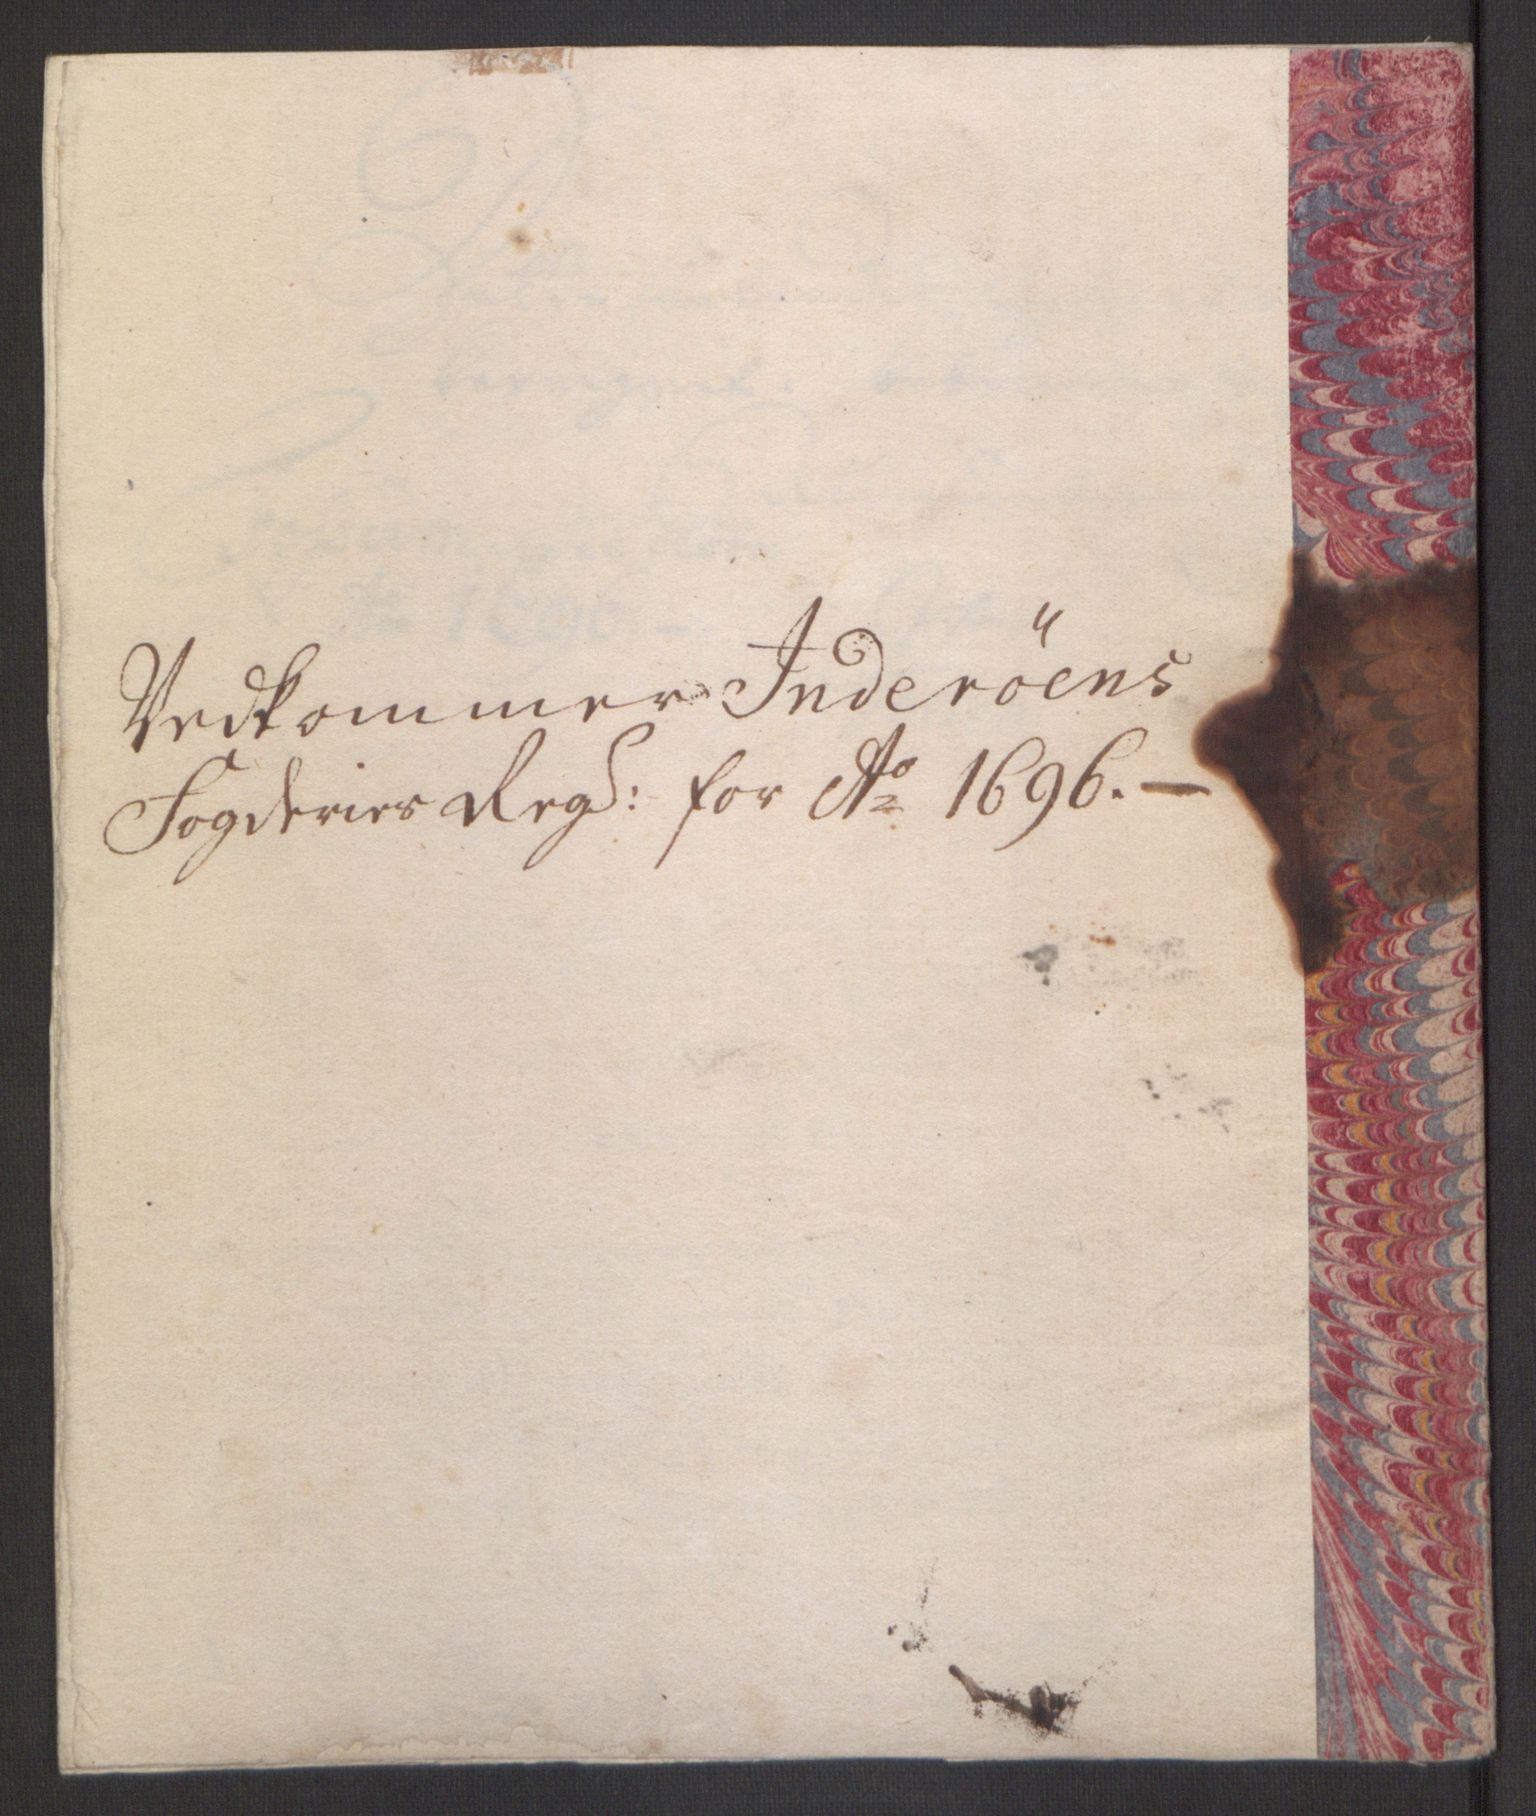 Vedkommer Inderöens
Fogderies Regs: for Ao 1696. —